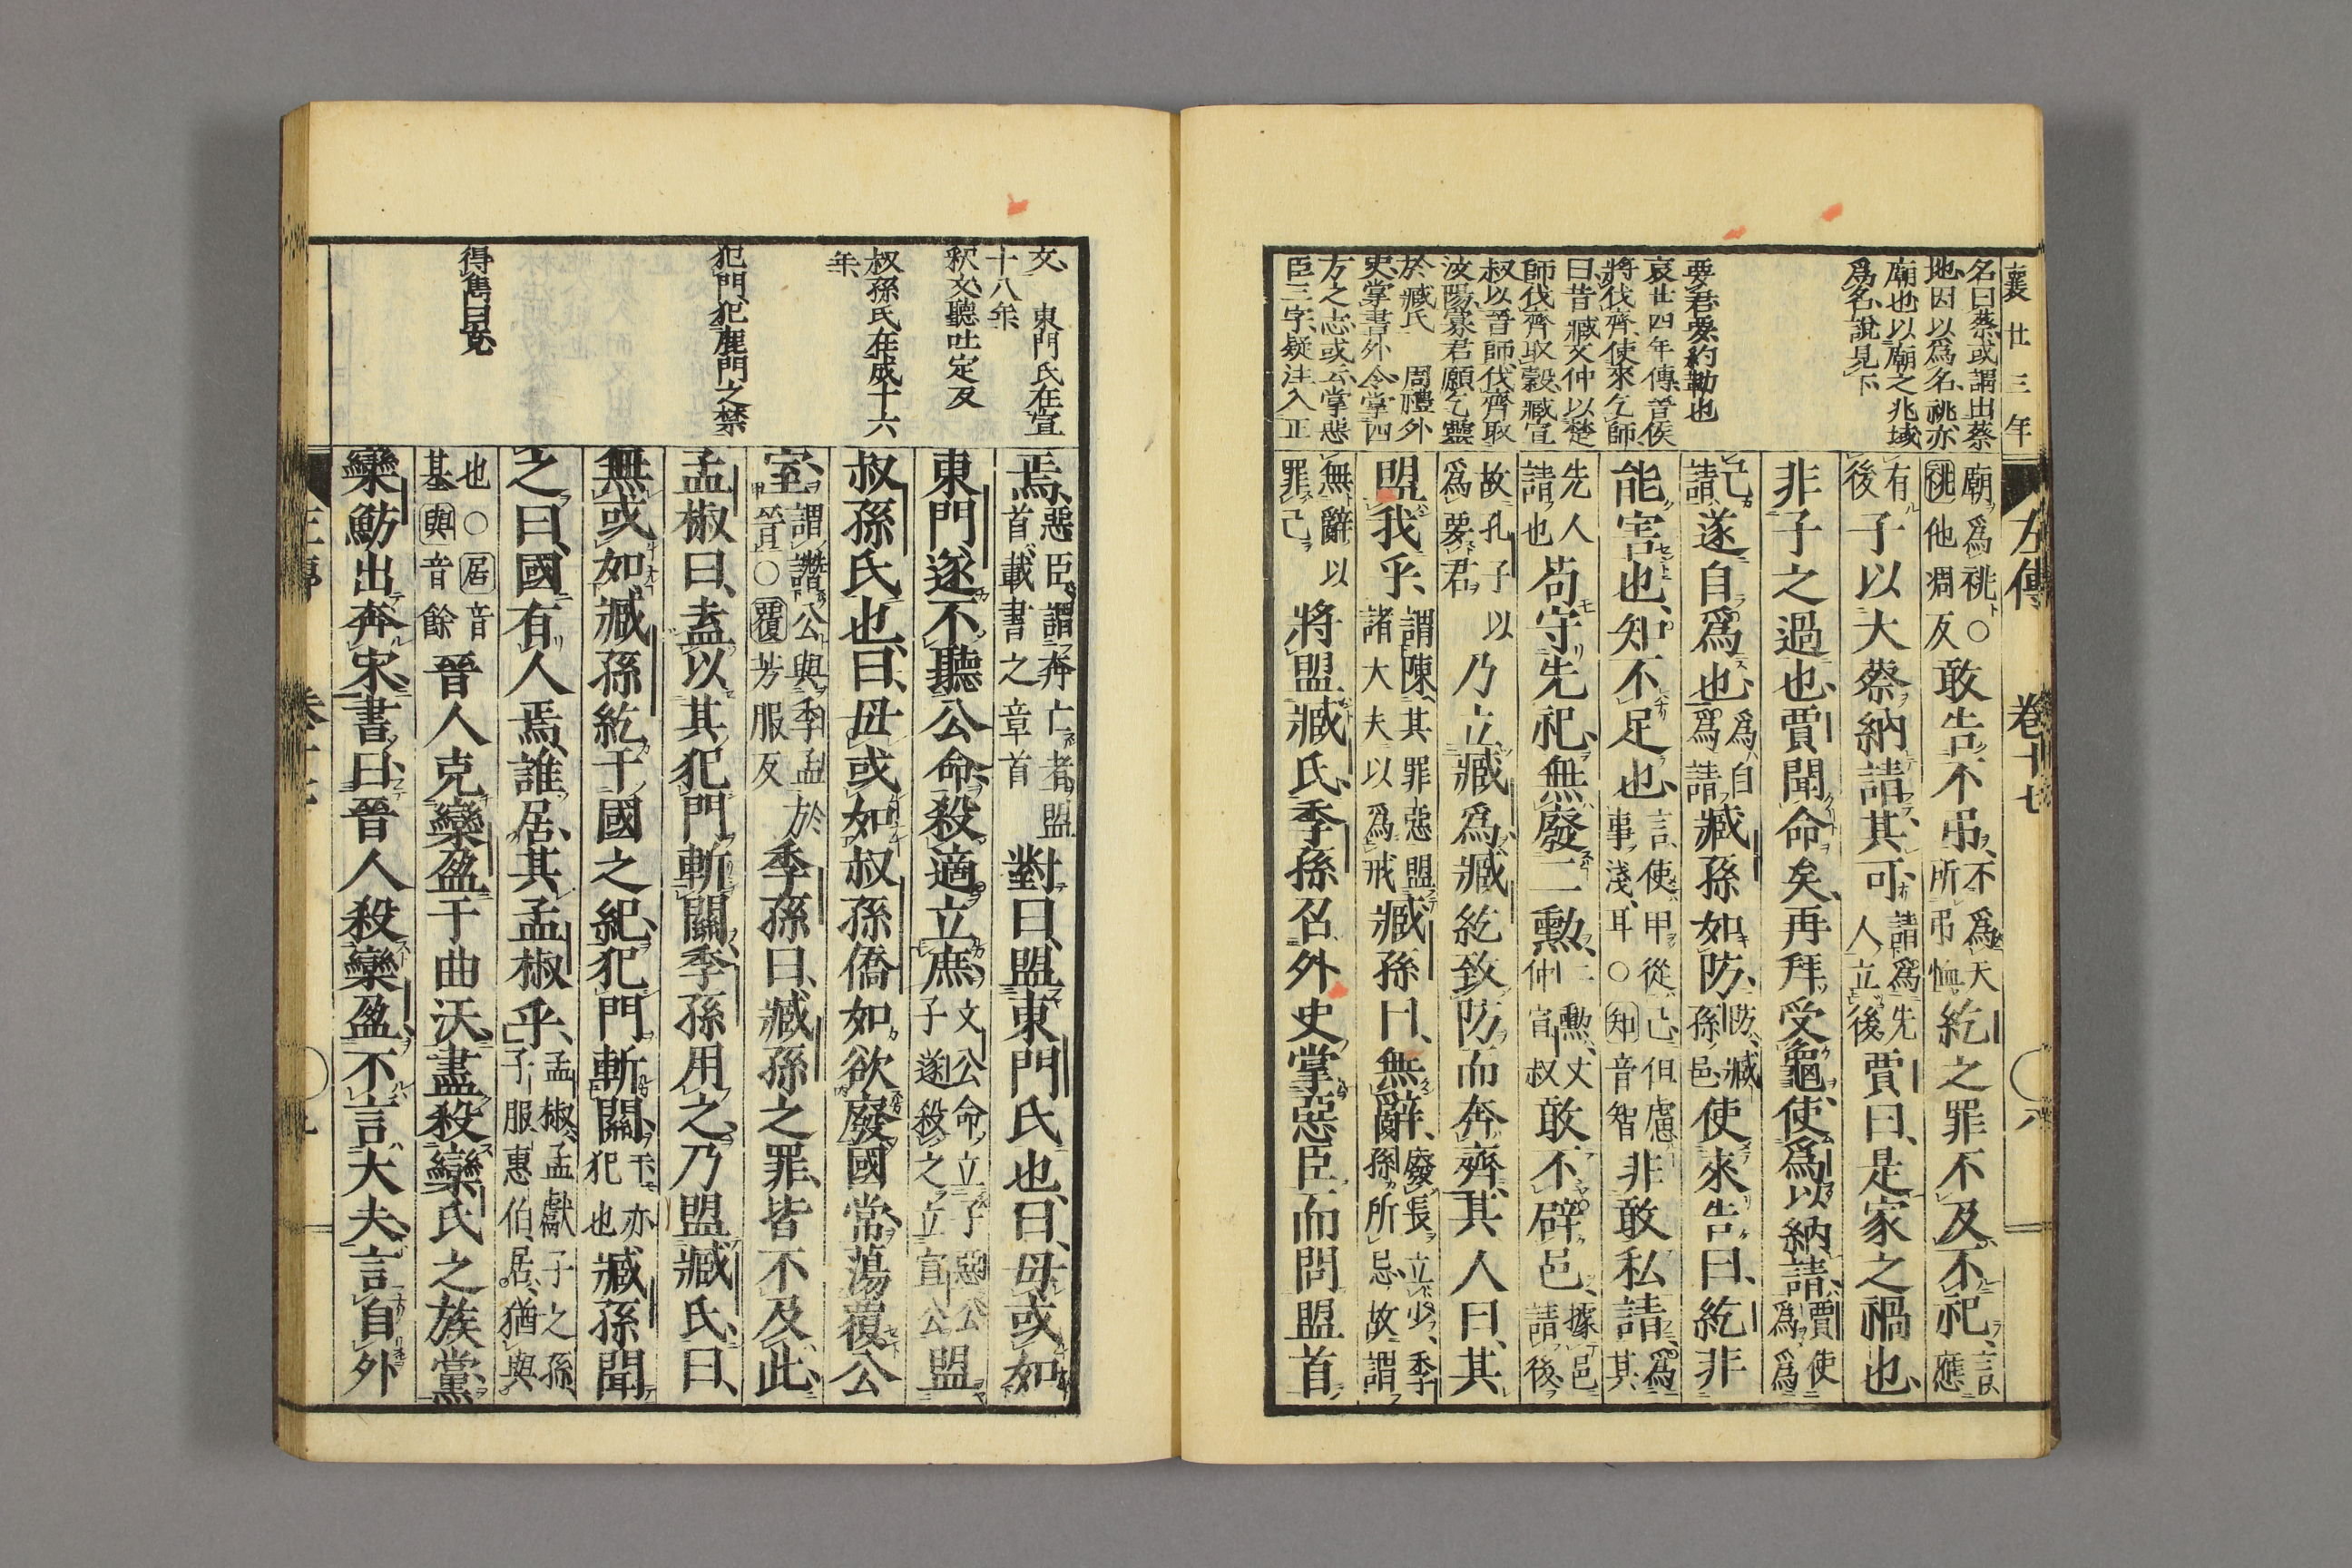 襄廿三年
左傳 卷十七 ○ 八
名曰蔡或謂出蔡
地因以爲名祧亦
廟也以廟之兆域
爲名說見下
要君要約勒也
哀廿四年傳晉侯
將伐齊使來乞師
曰昔臧文仲以楚
師伐齊取穀臧宣
叔以晉師伐齊取
汶陽寡君願乞靈
於臧氏 周禮外
史掌書外令掌四
方之志或云掌惡
臣三字疑注入正
廟爲祧○祧他彫反敢告不弔不爲天所弔恤紇之罪不及不祀言應
有後子以大蔡納請其可請爲先人立後賈曰是家之禍也
非子之過也賈聞命矣再拜受龜使爲以納請賈使爲爲
己請遂自爲也爲自爲請臧孫如防防臧孫邑使來告曰紇非
能害也知不足也言使甲從己但慮事淺耳○知音智非敢私請爲其
先人請也苟守先祀無廢二勳二勳文仲宣叔敢不辟邑據邑請後
故孔子以爲要君乃立臧爲臧紇致防而奔齊其人曰其
盟我乎謂陳其罪惡盟諸大夫以爲戒臧孫曰無辭廢長立少季孫所忌故謂
無辭以罪己將盟臧氏季孫召外史掌惡臣而問盟首
文 東門氏在宣
十八年
釈文聽吐定反
叔孫氏在成十六
年
犯門犯鹿門之禁
得雋曰克
焉惡臣謂奔亡者盟首載書之章首對曰盟東門氏也曰毋或如
東門遂不聽公命殺適立庶文公命立子惡公子遂殺之立宣公盟
叔孫氏也曰毋或如叔孫僑如欲廢國常蕩覆公
室謂譖公與季孟於晉○覆芳服反季孫曰臧孫之罪皆不及此
孟椒曰盍以其犯門斬關季孫用之乃盟臧氏曰
無或如臧孫紇干國之紀犯門斬關干亦犯也臧孫聞
之曰國有人焉誰居其孟椒乎孟椒孟獻子之孫子服惠伯居猶與
也○居音基與音餘晉人克欒盈于曲沃盡殺欒氏之族黨
欒魴出奔宋書曰晉人殺欒盈不言大夫言自外